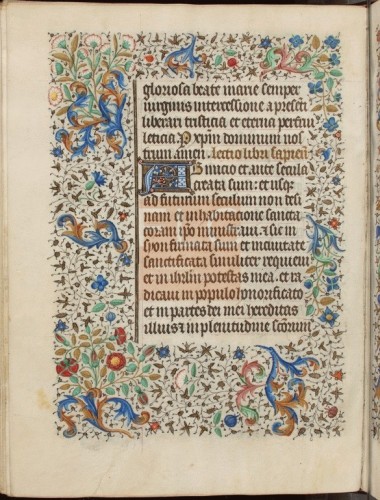 gloriosa beate marie semper
uirginis intercessione a presenti
liberari tristicia et eterna perfrui
leticia. P xpm dominum nos
trum amen. lectio libri sapien.
Ab inicio et ante secula
creata sum: et usqz
ad futurum seculum non desi
nam et in habitacione sancta
coram ipo ministraui. & sic in
syon firmata sum et in ciuitate
sanctificata similiter requieui
et in ihrlm potestas mea. et ra
dicaui in populo honorificato
et in partes dei mei hereditas
illius & in plenitudine scorum